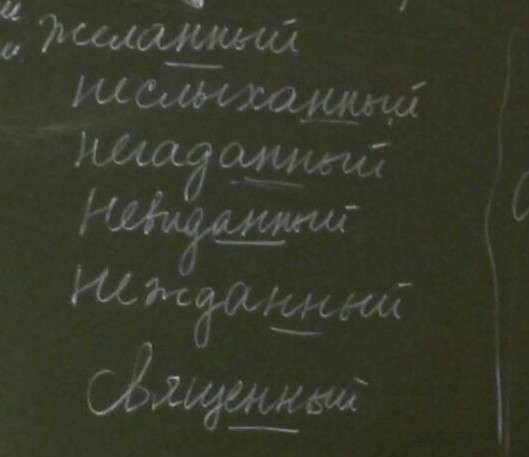 желанный
неслыханный
негаданный
Невиданный
Нежданный
священный